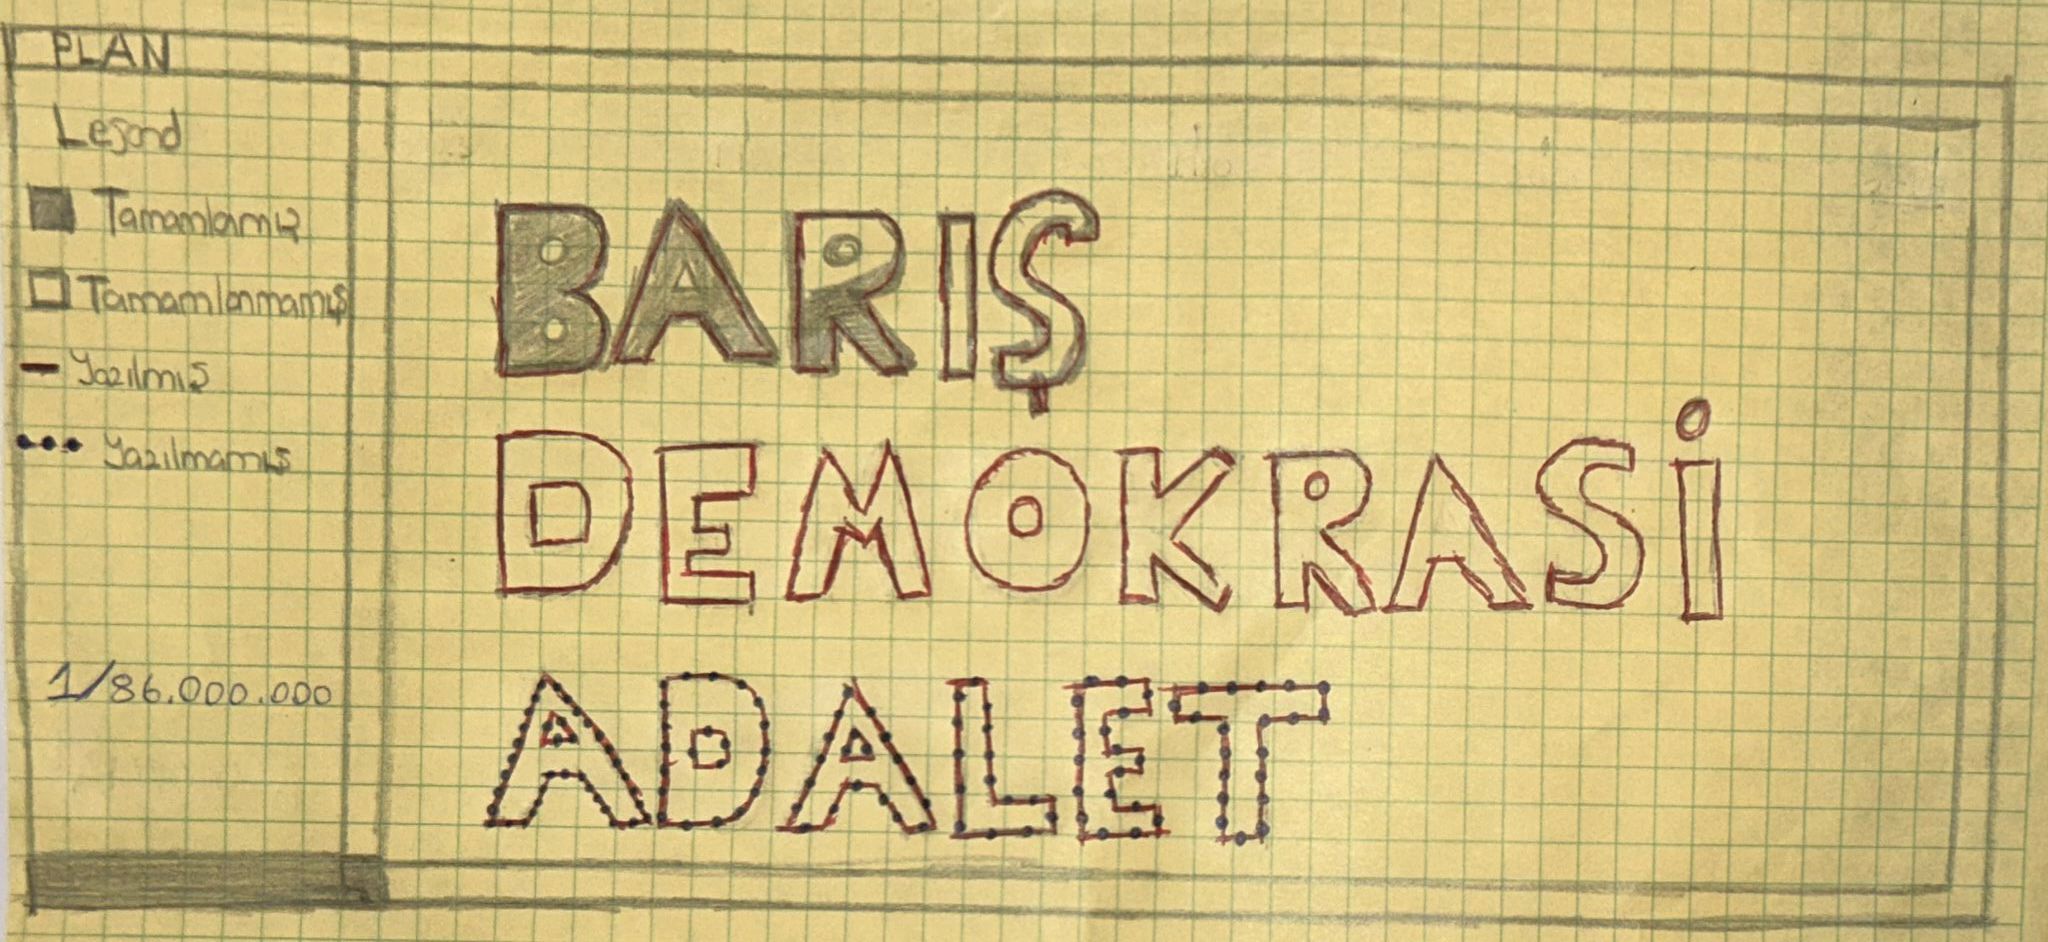 PLAN
Lejand
Tamamlanmış
Tamamlanmamış
Yazılmış
Yazılmamış
1/86.000.000
BARIŞ
DEMOKRASİ
ADALET